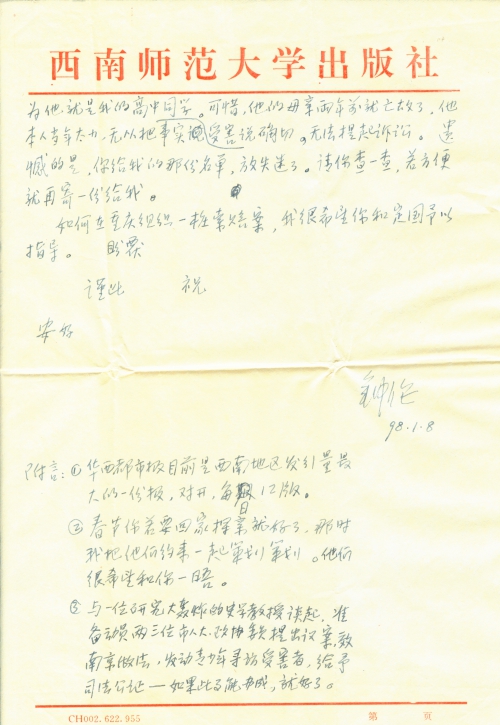 西南师范大学出版社
为他就是我的高中同学。可惜,他们母亲两年前就亡故了,他
本人当年太小,无从把事实受害说确切。无法提起诉讼。遗
憾的是,你给我的那份名单,放失迷了。请你查一查,若方便
就再寄一份给我。
如何在重庆组织一桩索赔案,我很希望你和定国予以
指导。 盼覆
谨此 祝
安好
98.1.8
附言:①华西都市报目前是西南地区发行量最
大的一份报,对开,每日12版。
②春节你若要回家探亲就好了,那时
我把他们约来一起策划策划。他们
很希望和你一晤。
③与一位研究大轰炸的史学教授谈起,准
备动员两三位市人大、政协委员提出议案,效
南京做法,发动青少年寻访受害者,给予
司法公证——如果此事能办成,就好了。
CH002.622.955 第 页